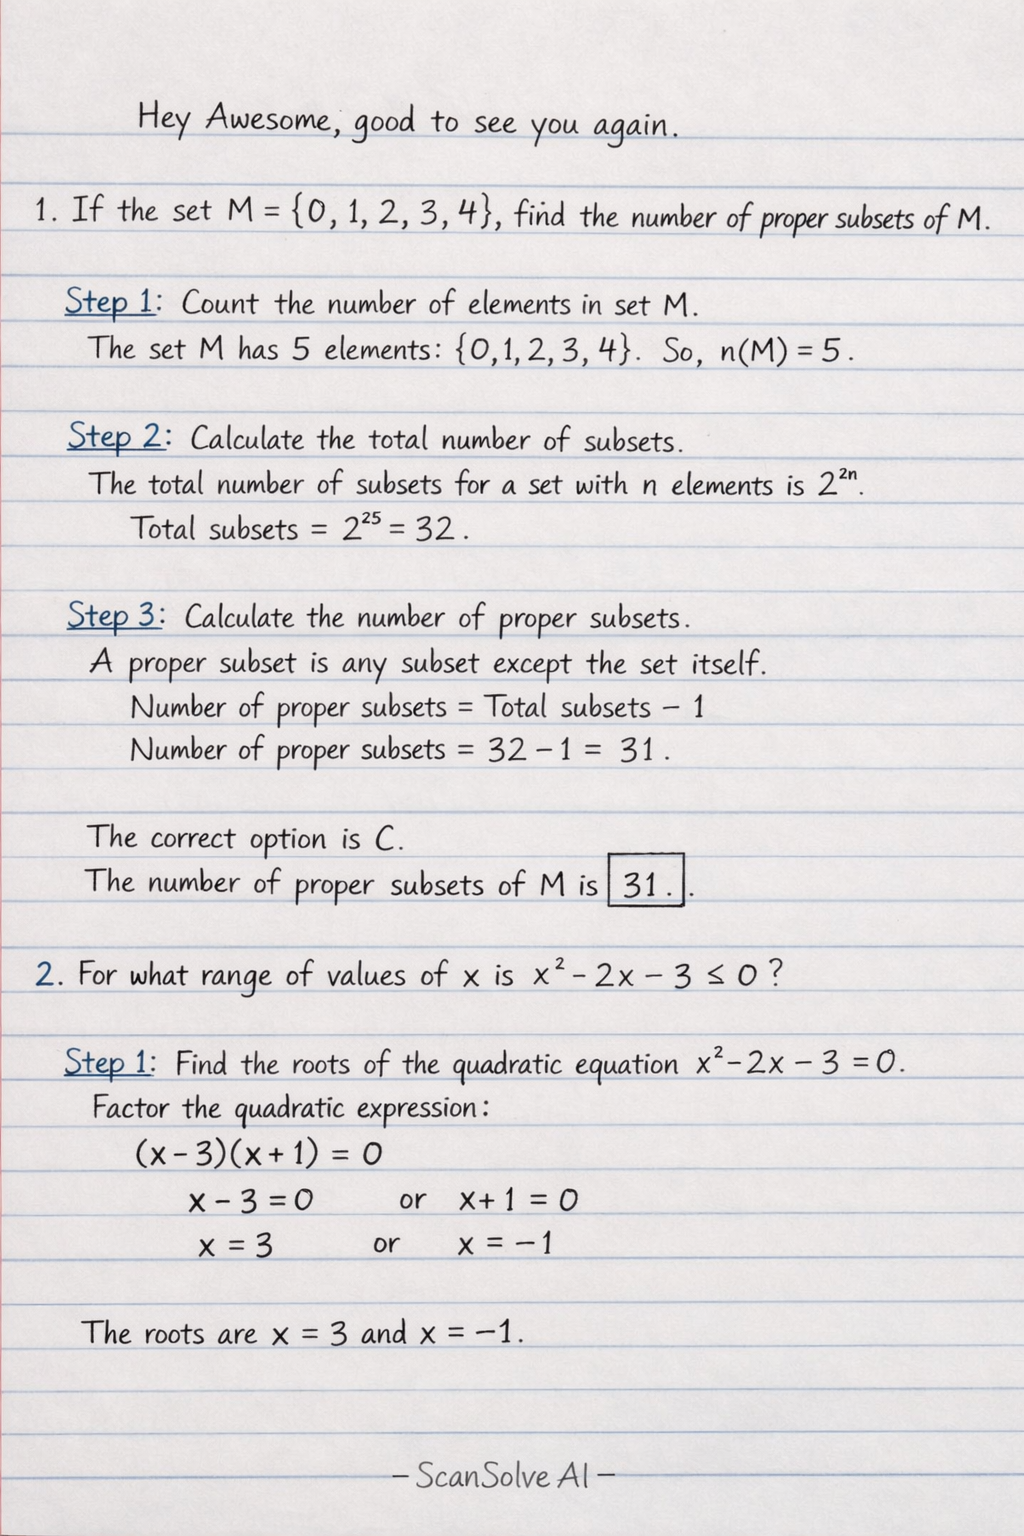 Hey Awesome, good to see you again.
1. If the set M = {0, 1, 2, 3, 4}, find the number of proper subsets of M.
Step 1: Count the number of elements in set M.
The set M has 5 elements: {0,1,2,3,4}. So, n(M) = 5.
Step 2: Calculate the total number of subsets.
The total number of subsets for a set with n elements is 2²ⁿ.
Total subsets = 2²⁵ = 32.
Step 3: Calculate the number of proper subsets.
A proper subset is any subset except the set itself.
Number of proper subsets = Total subsets − 1
Number of proper subsets = 32 − 1 = 31.
The correct option is C.
The number of proper subsets of M is 31. .
2. For what range of values of x is x² − 2x − 3 ≤ 0?
Step 1: Find the roots of the quadratic equation x² − 2x − 3 = 0.
Factor the quadratic expression:
(x − 3)(x + 1) = 0
x − 3 = 0 or x + 1 = 0
x = 3 or x = −1
The roots are x = 3 and x = −1.
– ScanSolve AI –